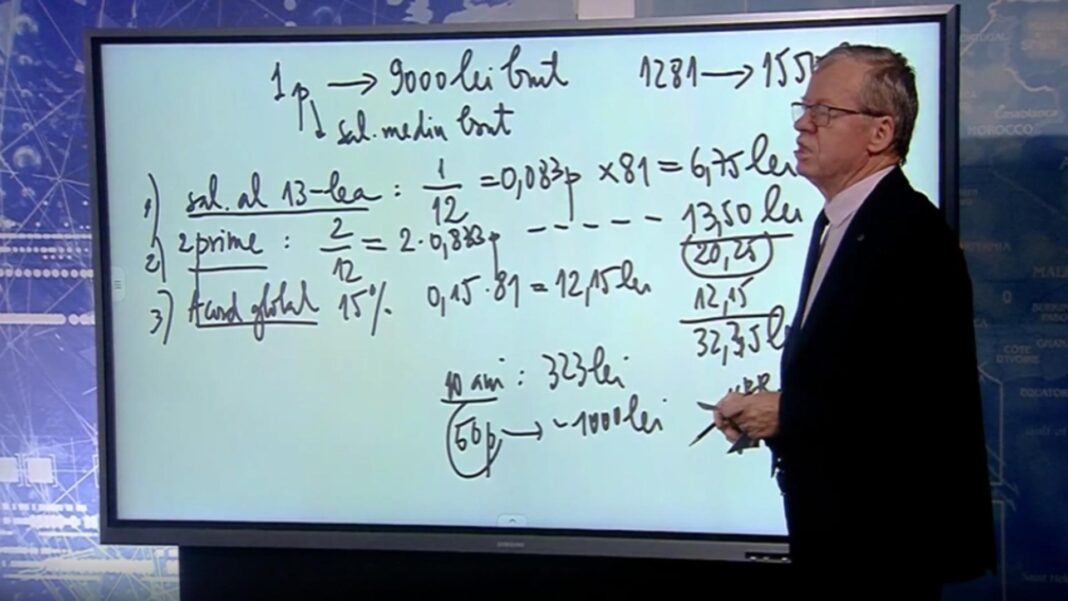 1p → 9000 lei brut
1281 → 155
sal. mediu brut
1) sal. al 13-lea : 1/12 = 0,083p × 81 = 6,75 lei
2) 2 prime : 2/12 = 2 · 0,833p ----- 13,50 lei
20,25
3) Acord global 15% 0,15 · 81 = 12,15 lei
12,15
32,35 l
10 ani : 323 lei
50p → ~1000 lei
SAMSUNG
MOROCCO
Casablanca
CÔTE
D'IVOIRE
EQUATOR